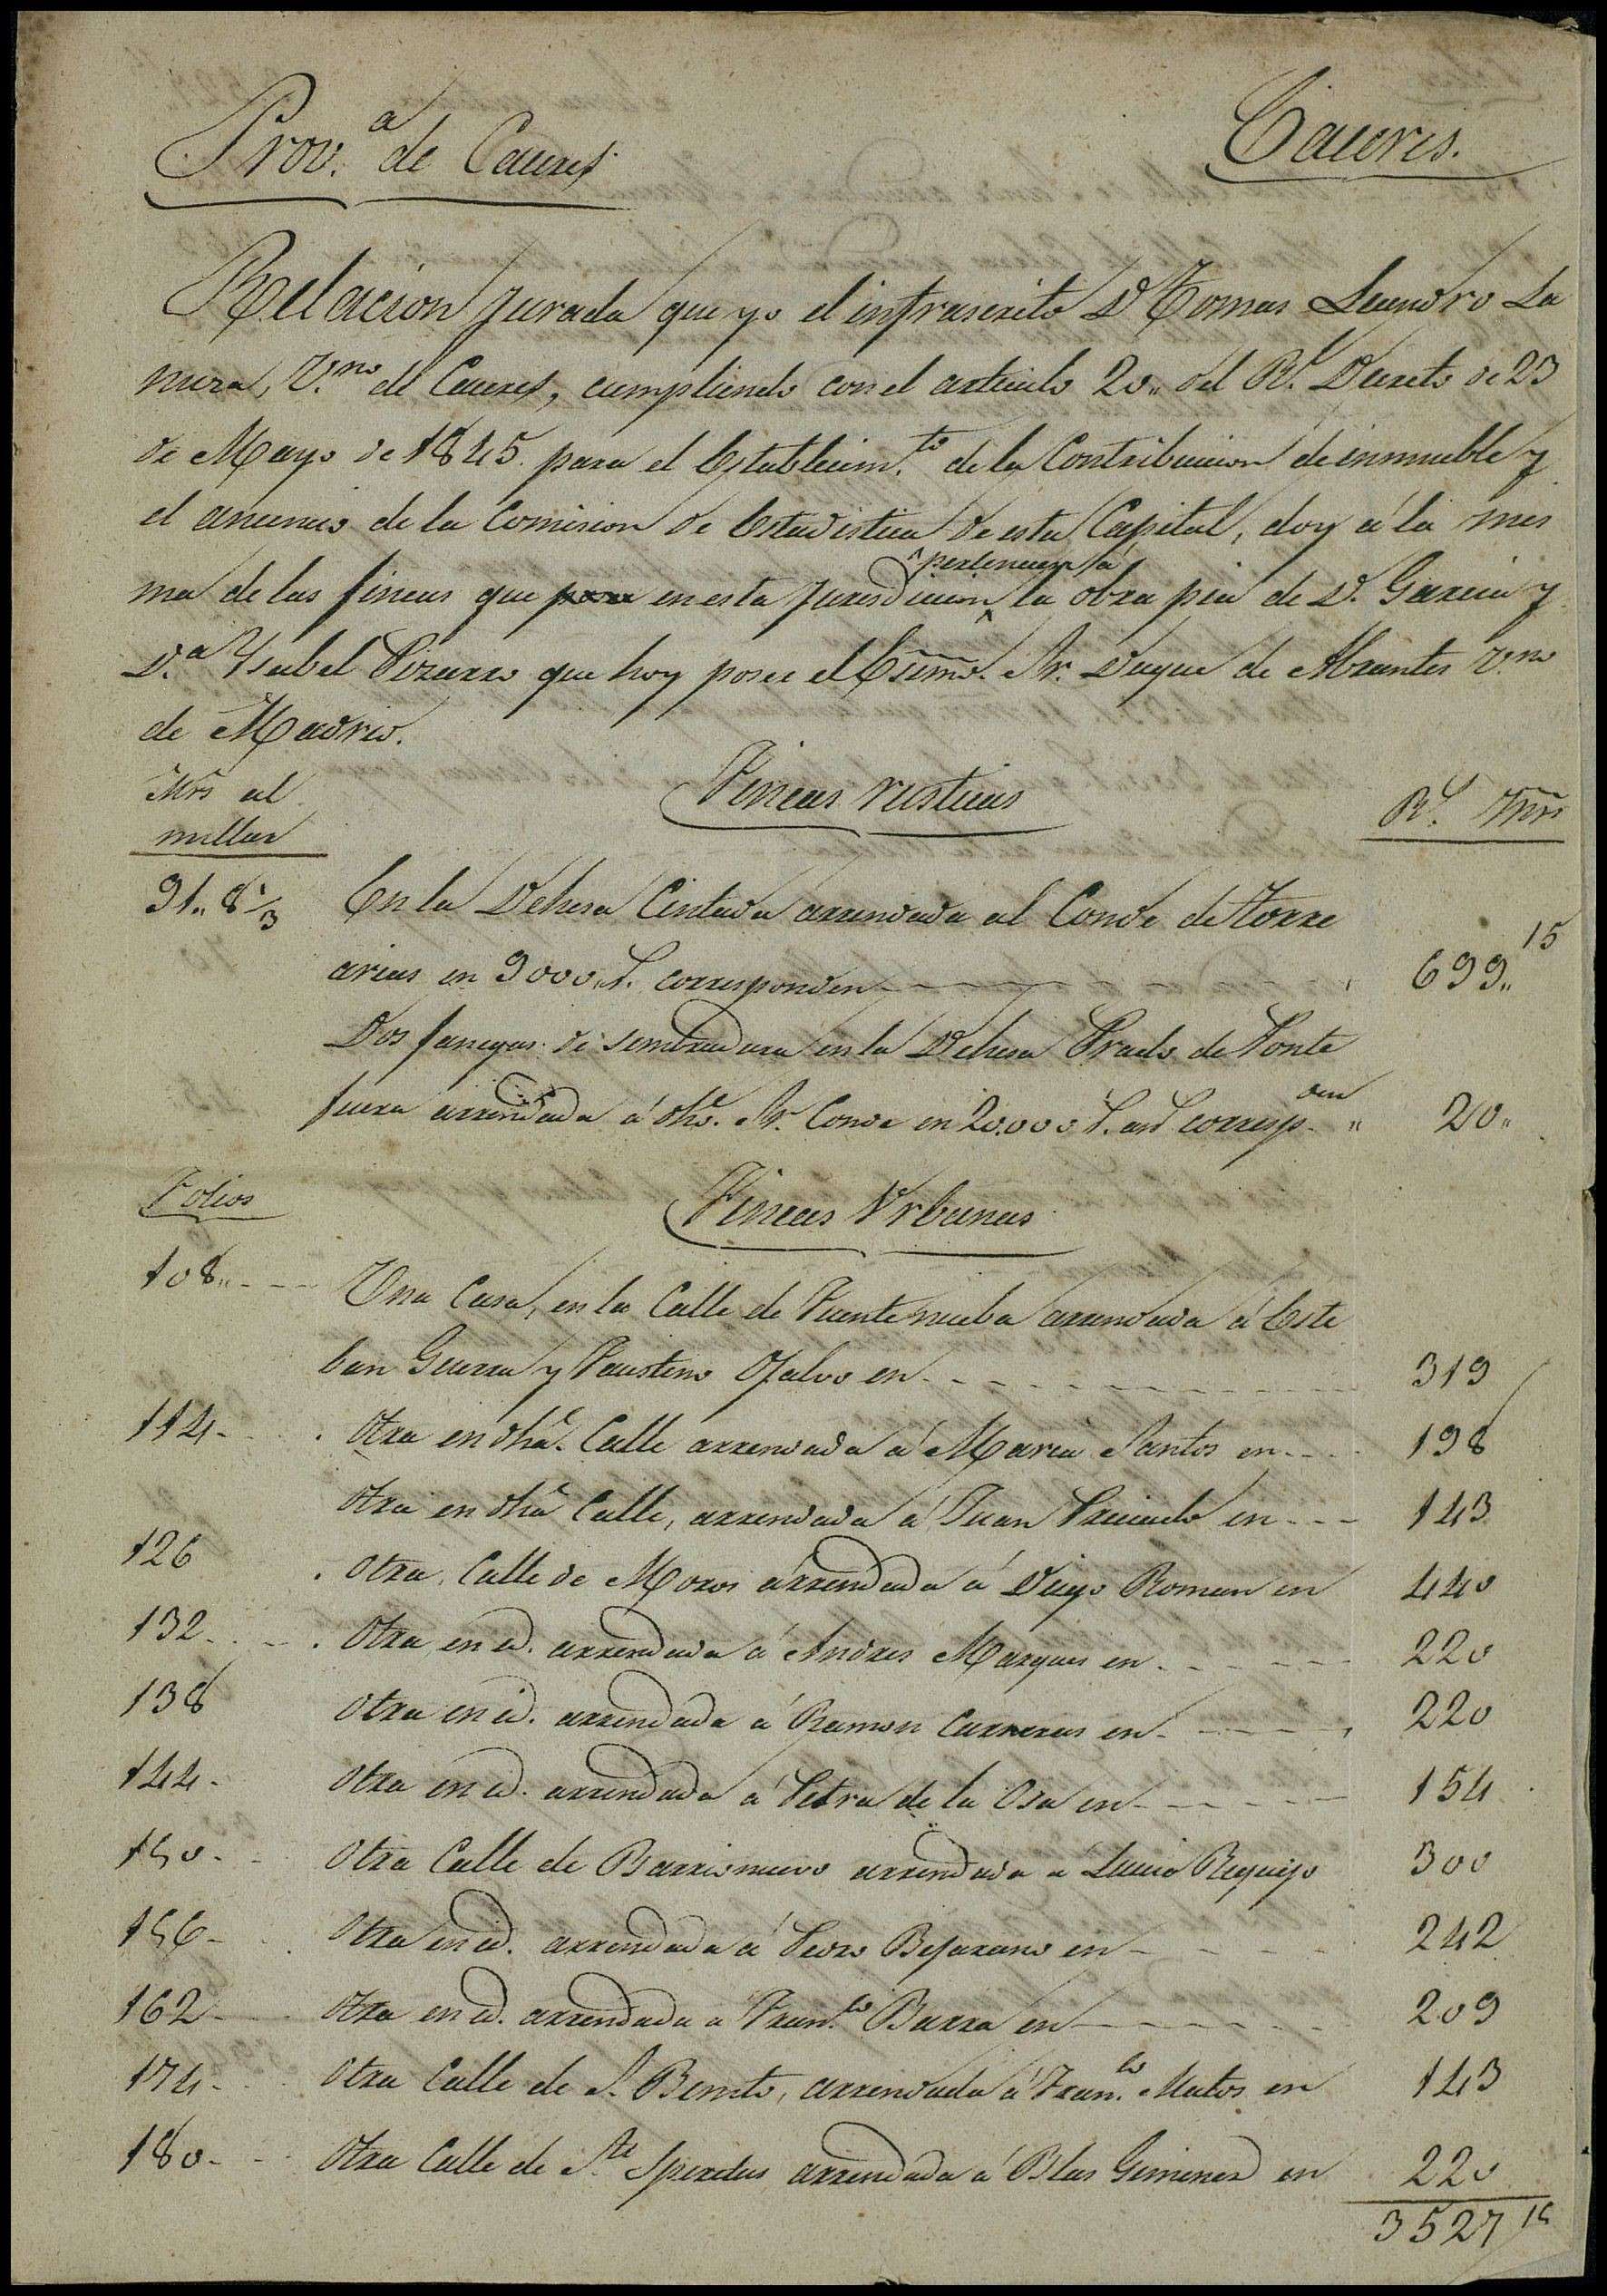 Prov.ª de Caceres
Caceres.
Relacion jurada que yo el infrascrito D. Tomas Leandro La
mira, V.no de Caceres, cumpliendo con el articulo 20,, del Rl. Decreto de 23
de Mayo de 1845 para el Establecim.to de la Contribucion de inmueble y
el anuncio de la Comision de Estadistica de esta Capital, doy á la mis
pertenecen á
ma de las fincas que en esta Jurisdiccion la obra pia de D. Garcia y
D.ª Ysabel Pizarro que hoy posee el Esmo. Sr. Duque de Abrantes V.no
de Madrid.
Mrs al
millar
Fincas rusticas
Rs. Mrs
31,, 8 1/3 En la Dehesa Cintada arrendada al Conde de Torre
arias en 9000,, r. corresponden 699,, 15
Dos fanegas de sembradura en la Dehesa Prado de Ponte
fuera arrendada á dho. Sr. Conde en 20.000 r. corresp.den 20,,
Folios
Fincas Urbanas
108,, Una Casa, en la Calle de Fuente nueba arrendada á Este
ban Guerra y Faustino Ojalvo en 319
114 Otra en dha. Calle arrendada á Maria Santos en 198
Otra en dha Calle, arrendada á Juan Preciado en 143
126 Otra Calle de Moros arrendada á Diego Roman en 440
132 Otra en id. arrendada á Andres Marques en 220
138 Otra en id. arrendada á Ramon Carreras en 220
144 Otra en id. arrendada á Petra de la Osa en 154
150 Otra Calle de Barrionuevo arrendada á Lucio Requijo 300
156 Otra en id. arrendada á Pedro Bejarano en 242
162 Otra en id. arrendada a Fran.co Barra en 209
174 Otra Calle de S. Benito, arrendada á Fran.co Matos en 143
180 Otra Calle de Sti Speritus arrendada á Blas Gimenez en 220
3527 15